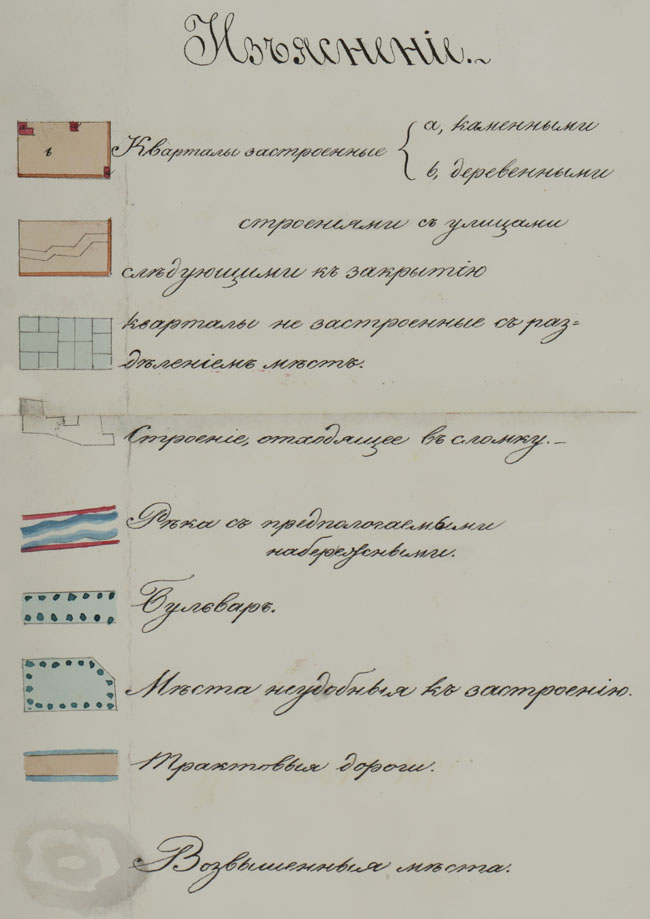 Изъясненіе.
в
Кварталы застроенные { а, каменными
в, деревенными
строеніями съ улицами
слѣдующими къ закрытію
кварталы не застроенные съ раз=
дѣленіемъ мѣстъ.
Строеніе, отходящее въ сломку.
Рѣка съ предпологаемыми
набережными.
Бульваръ.
Мѣста неудобныя къ застроенію.
Трактовыя дороги.
Возвышенныя мѣста.